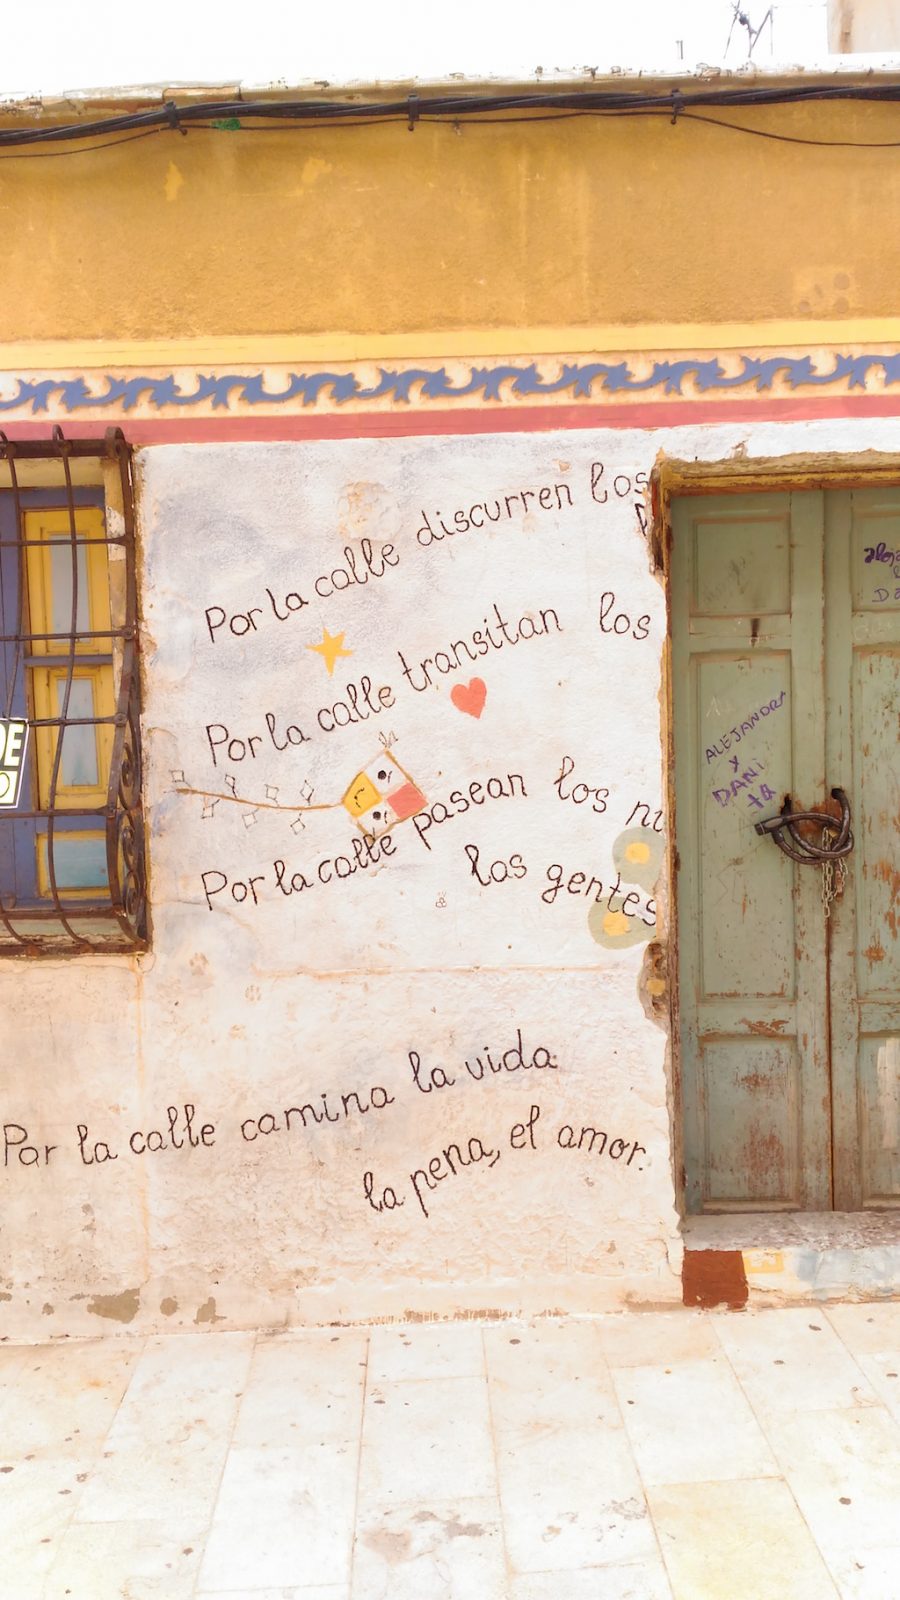 Por la calle discurren los
Por la calle transitan los
Por la calle pasean los
las gentes
Por la calle camina la vida
la pena, el amor.
ALEJANDRA
X
DANI